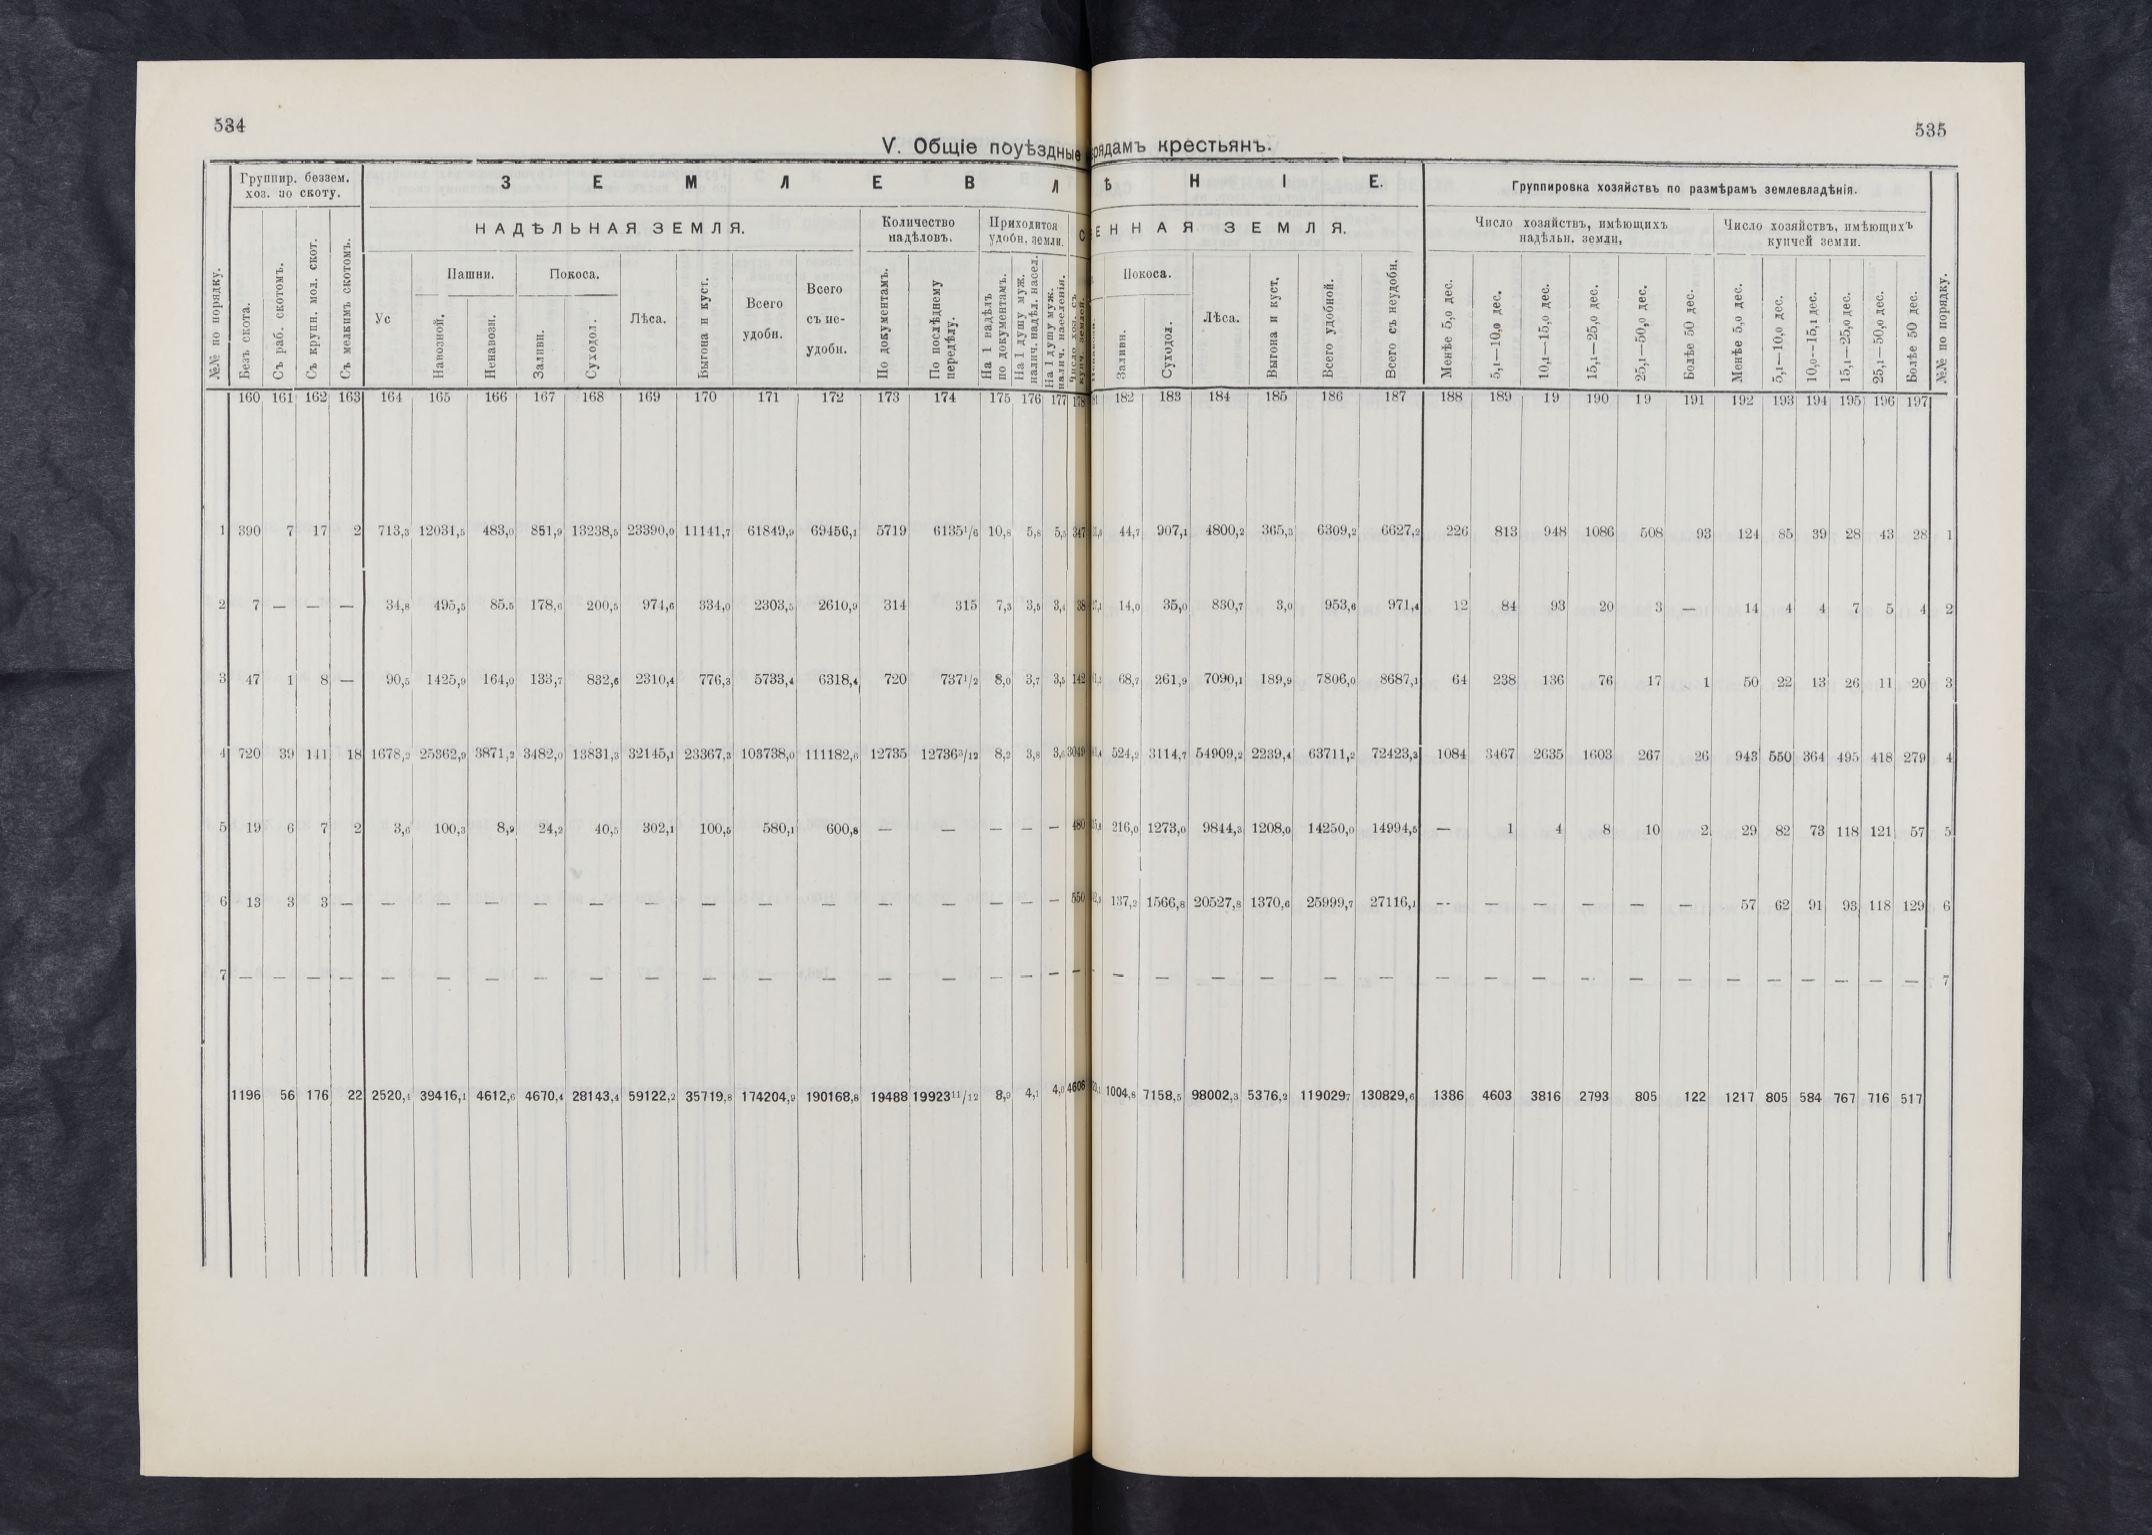 534
535
V. Общіе поуѣздные рядамъ крестьянъ.
№№ по порядку.
Группир. беззем. хоз. по скоту.
Безъ скота.
Съ раб. скотомъ.
Съ крупн. мол. скот.
Съ мелкимъ скотомъ.
З Е М Л Е В Л Ѣ Н І Е.
НАДѢЛЬНАЯ ЗЕМЛЯ.
Ус
Пашни.
Навозной.
Ненавозн.
Покоса.
Заливн.
Суходол.
Лѣса.
Выгона и куст.
Всего удобн.
Всего съ не- удобн.
Количество надѣловъ.
По документамъ.
По послѣднему передѣлу.
Приходится удобн. земли.
На 1 надѣлъ по документамъ.
На 1 душу муж. налич. надѣл. насел.
На 1 душу муж. налич. населенія.
Число хоз. съ купч. землей.
ЕННАЯ ЗЕМЛЯ.
Покоса.
Заливн.
Суходол.
Лѣса.
Выгона и куст.
Всего удобной.
Всего съ неудобн.
Группировка хозяйствъ по размѣрамъ землевладѣнія.
Число хозяйствъ, имѣющихъ надѣльн. земли,
Менѣе 5,0 дес.
5,1—10,0 дес.
10,1—15,0 дес.
15,1—25,0 дес.
25,1—50,0 дес.
Болѣе 50 дес.
Число хозяйствъ, имѣющихъ купчей земли.
Менѣе 5,0 дес.
5,1—10,0 дес.
10,0—15,1 дес.
15,1—25,0 дес.
25,1—50,0 дес.
Болѣе 50 дес.
№№ по порядку.
160 161 162 163 164 165 166 167 168 169 170 171 172 173 174 175 176 177 178 182 183 184 185 186 187 188 189 19 190 19 191 192 193 194 195 196 197
1 390 7 17 2 713,3 12031,5 483,0 851,9 13238,5 23390,0 11141,7 61849,9 69456,1 5719 6135 1/6 10,8 5,8 5,5 347 44,7 907,1 4800,2 365,3 6309,2 6627,2 226 813 948 1086 508 93 124 85 39 28 43 28 1
2 7 — — — 34,8 495,5 85.5 178,6 200,5 974,6 334,0 2303,5 2610,9 314 315 7,3 3,5 3,4 38 14,0 35,0 830,7 3,0 953,6 971,4 12 84 93 20 3 — 14 4 4 7 5 4 2
3 47 1 8 — 90,5 1425,9 164,0 133,7 832,6 2310,4 776,3 5733,4 6318,4 720 737 1/2 8,0 3,7 3,5 142 68,7 261,9 7090,1 189,9 7806,0 8687,1 64 238 136 76 17 1 50 22 13 26 11 20 3
4 720 39 141 18 1678,2 25362,9 3871,2 3482,0 13831,3 32145,1 23367,3 103738,0 111182,6 12735 12736 3/12 8,2 3,8 3,6 3049 524,2 3114,7 54909,2 2239,4 63711,2 72423,3 1084 3467 2635 1603 267 26 943 550 364 495 418 279 4
5 19 6 7 2 3,6 100,3 8,9 24,2 40,5 302,1 100,5 580,1 600,8 — — — — — 480 216,0 1273,0 9844,3 1208,0 14250,0 14994,5 — 1 4 8 10 2 29 82 73 118 121 57 5
6 13 3 3 — — — — — — — — — — — — — — — 550 137,2 1566,8 20527,8 1370,6 25999,7 27116,1 — — — — — — 57 62 91 93 118 129 6
7 — — — — — — — — — — — — — — — — — — — — — — — — — — — — — — — — — — — — — 7
1196 56 176 22 2520,4 39416,1 4612,6 4670,4 28143,4 59122,2 35719,8 174204,9 190168,8 19488 19923 11/12 8,9 4,1 4,0 4606 1004,8 7158,5 98002,3 5376,2 119029,7 130829,6 1386 4603 3816 2793 805 122 1217 805 584 767 716 517